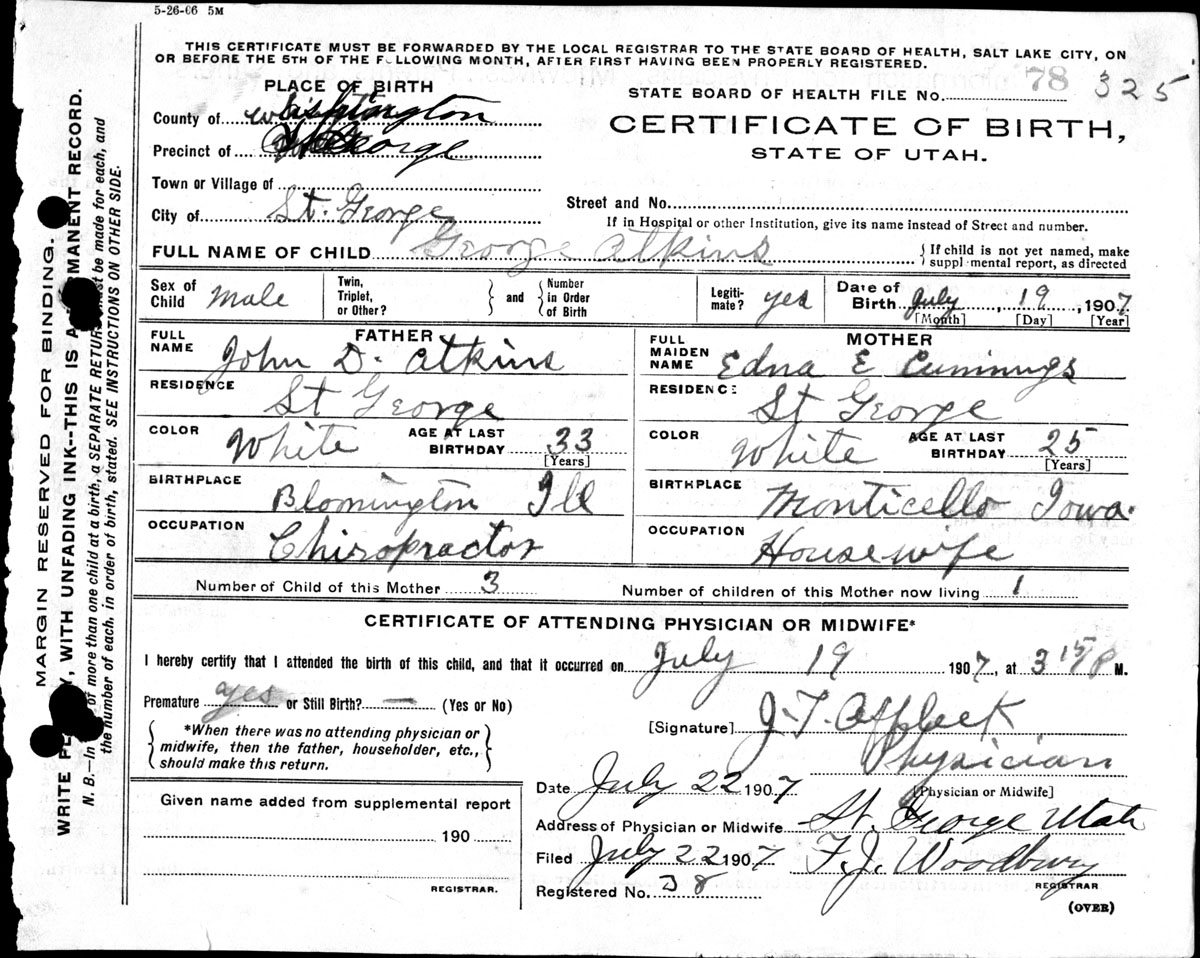 5-26-06 5M
THIS CERTIFICATE MUST BE FORWARDED BY THE LOCAL REGISTRAR TO THE STATE BOARD OF HEALTH, SALT LAKE CITY, ON
OR BEFORE THE 5TH OF THE FOLLOWING MONTH, AFTER FIRST HAVING BEEN PROPERLY REGISTERED.
PLACE OF BIRTH
STATE BOARD OF HEALTH FILE No. 78 325
County of Washington
CERTIFICATE OF BIRTH,
STATE OF UTAH.
Precinct of St George
Town or Village of
Street and No.
City of St. George
If in Hospital or other Institution, give its name instead of Street and number.
FULL NAME OF CHILD George Atkins
{If child is not yet named, make
supplemental report, as directed
Sex of Child Male
Twin, Triplet, or Other? } and { Number in Order of Birth
Legitimate? yes
Date of Birth July, 19, 1907
[Month] [Day] [Year]
FATHER
FULL NAME John D. Atkins
RESIDENCE St George
COLOR White AGE AT LAST BIRTHDAY 33
[Years]
BIRTHPLACE Blomington Ill
OCCUPATION Chiropractor
MOTHER
FULL MAIDEN NAME Edna E Cummings
RESIDENCE St George
COLOR White AGE AT LAST BIRTHDAY 25
[Years]
BIRTHPLACE Monticello Iowa.
OCCUPATION Housewife
Number of Child of this Mother 3 Number of children of this Mother now living 1
CERTIFICATE OF ATTENDING PHYSICIAN OR MIDWIFE*
I hereby certify that I attended the birth of this child, and that it occurred on July 19 1907, at 3 15 P M.
Premature yes or Still Birth? — (Yes or No)
*When there was no attending physician or
midwife, then the father, householder, etc.,
should make this return.
[Signature] J. T. Affleck
Physician
[Physician or Midwife]
Date July 22 1907
Address of Physician or Midwife St. George Utah
Filed July 22 1907 F. J. Woodbury
REGISTRAR
Registered No. 38
(OVER)
Given name added from supplemental report
190
REGISTRAR.
MARGIN RESERVED FOR BINDING.
WRITE PLAINLY, WITH UNFADING INK--THIS IS A PERMANENT RECORD.
N. B.—In of more than one child at a birth, a SEPARATE RETURN must be made for each, and
the number of each, in order of birth, stated. SEE INSTRUCTIONS ON OTHER SIDE.